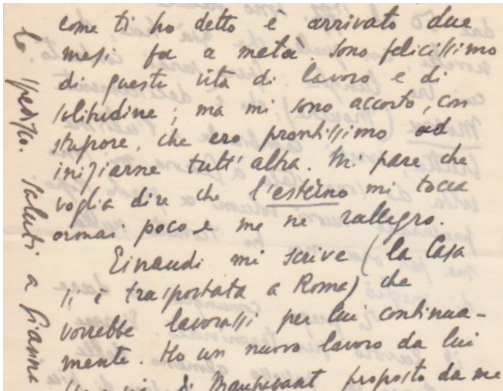 come ti ho detto è arrivato due
mesi fa a metà. Sono felicissimo
di questa vita di lavoro e di
solitudine; ma mi sono accorto, con
stupore, che ero prontissimo ad
iniziarne tutt'altra. Mi pare che
voglia dire che l'esterno mi tocca
ormai poco e me ne rallegro.
Einaudi mi scrive (la Casa
si è trasportata a Roma) che
vorrebbe lavorassi per lui continua-
mente. Ho un nuovo lavoro da lui
di Maupassant proposto da me
lo spedisco. Saluti a Gianna